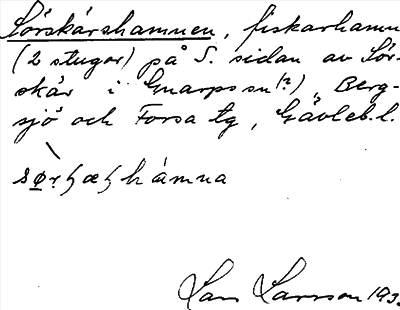 Sörskärshamnen, fiskarhamn
(2 stugor) på S. sidan av Sör-
skär i Gnarps sn(?), Berg-
sjö och Forsa tg, Gävleb. l.
hámna
Lars Larsson 193